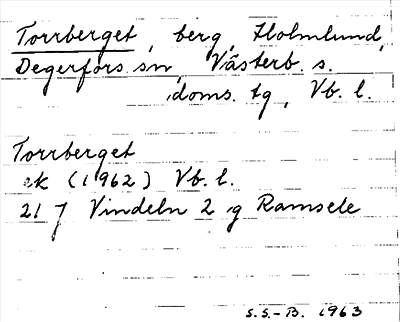 Torrberget, berg, Holmlund,
Degerfors sn, Västerb. s.
doms. tg, Vb. l.
Torrberget
ek (1962) Vb. l.
21 J Vindeln 2 g Ramsele
S.S.-B. 1963